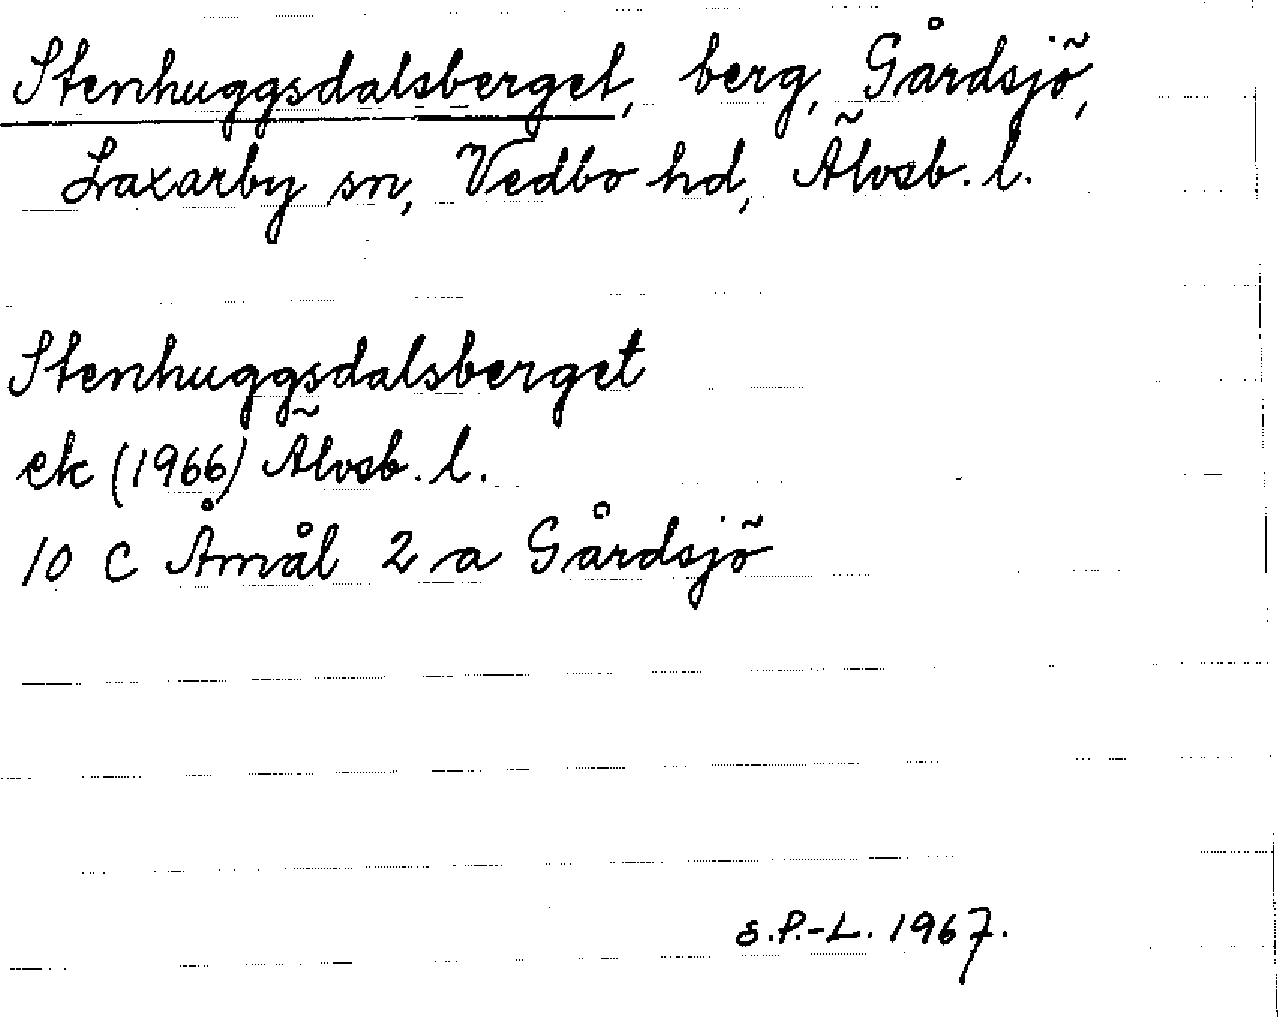 Stenhuggsdalsberget, berg, Gårdsjö,
Laxarby sn, Vedbo hd, Älvsb. l.
Stenhuggsdalsberget
ek (1966) Älvsb. l.
10 C Åmål 2 a Gårdsjö
S.P.-L. 1967.